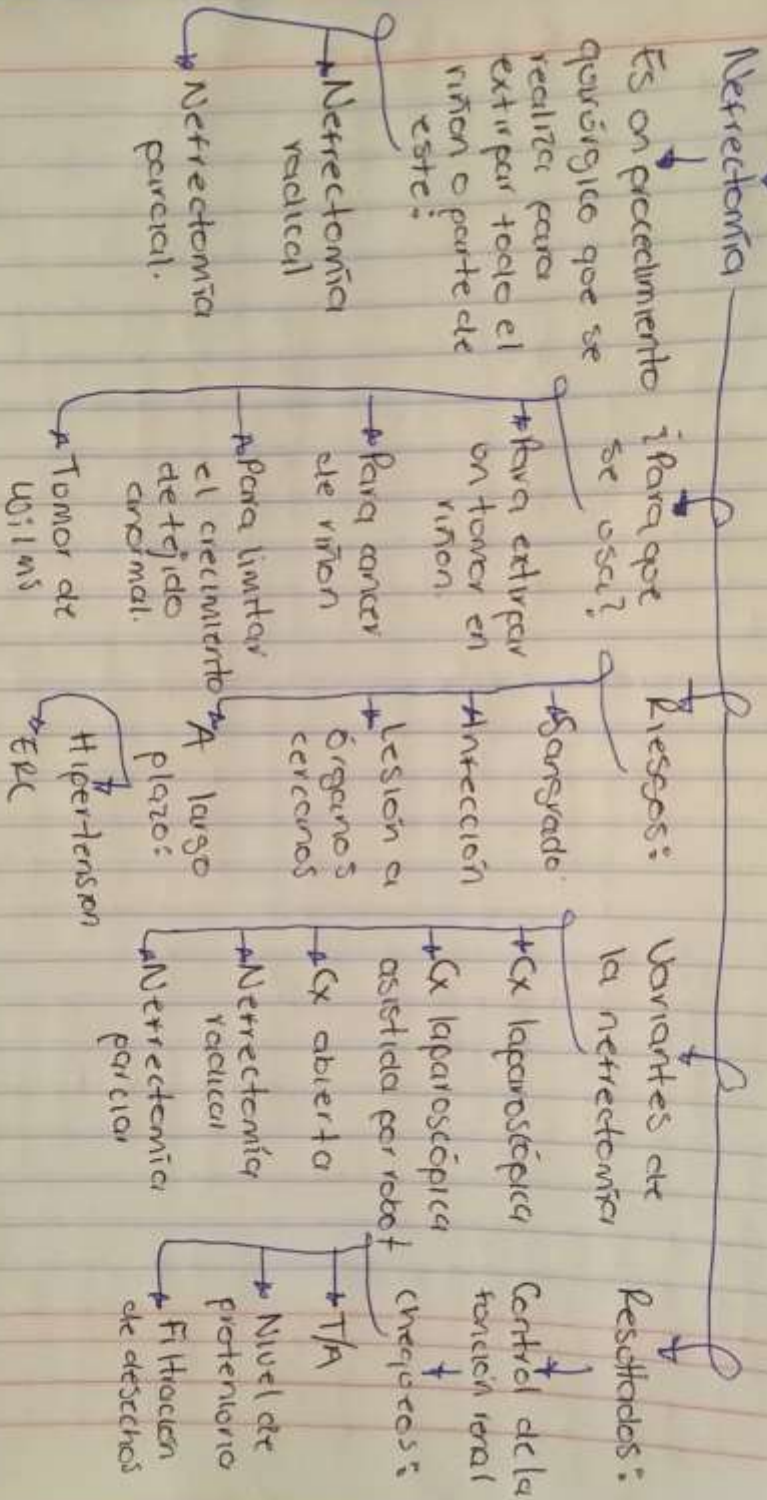 Nefrectomía
Es un procedimiento
quirúrgico que se
realiza para
extirpar todo el
riñon o parte de
este:
Nefrectomía
radical
Nefrectomía
parcial.
¿Para que
se usa?
Para extirpar
un tumor en
riñon.
Para cancer
de riñon
Para limitar
el crecimiento
de tejido
anormal.
Tumor de
Wilms
Riesgos:
Sangrado.
Infección
Lesión a
órganos
cercanos
A largo
plazo:
Hipertension
ERC
Variantes de
la nefrectomía
Cx laparoscópica
Cx laparoscópica
asistida por robot
Cx abierta
Nefrectomía
radical
Nefrectomía
parcial
Resultados:
Control de la
función renal
chequeos:
T/A
Nivel de
proteniuria
Filtración
de desechos